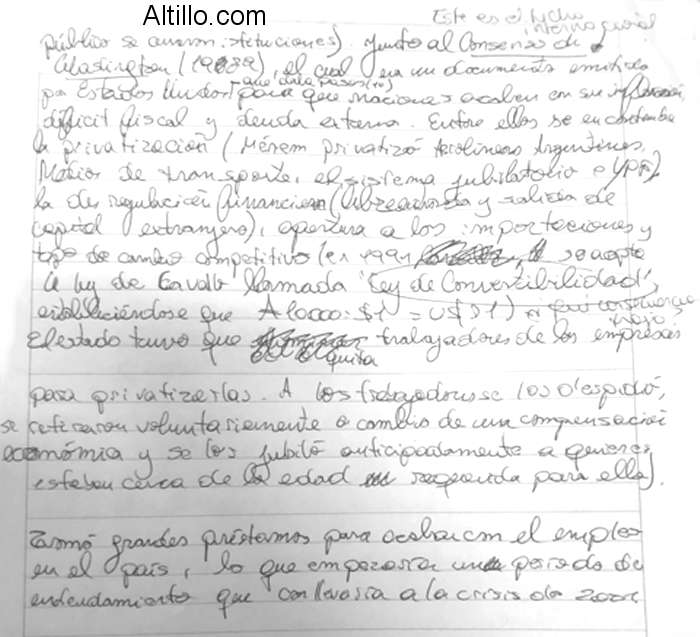 Altillo.com
Este es el
internacional
público se crearon instituciones). Junto al Consenso de
Washington (1989), el cual era un documento emitido
por Estados Unidos que daba pasos
para que naciones acaben con su inflación,
déficit fiscal y deuda externa. Entre ellos se encontraba
la privatización (Menem privatizó Aerolíneas Argentinas,
Medios de transporte, el sistema jubilatorio e YPF),
la desregulación financiera (libre entrada y salida de
capital extranjero), apertura a las importaciones y
tipo de cambio competitivo (en 1991 se acepta
la ley de Cavallo llamada "Ley de Convertibilidad",
estableciéndose que A10000:$1 = U$D1) qué consecuencias
trajo
El estado tuvo que quitar trabajadores de las empresas
para privatizarlas. A los trabajadores se los despidió,
se retiraron voluntariamente a cambio de una compensación
económica y se los jubiló anticipadamente a quienes
estaban cerca de la edad requerida para ello).
Tomó grandes préstamos para acabar con el empleo
en el país, lo que empezaría un periodo de
endeudamiento que conllevaría a la crisis de 2001